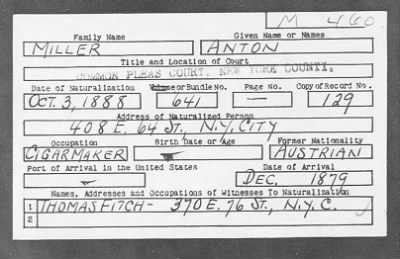 M 460
Family Name Given Name or Names
MILLER ANTON
Title and Location of Court
COMMON PLEAS COURT, NEW YORK COUNTY.
Date of Naturalization Volume or Bundle No. Page No. Copy of Record No.
OCT. 3, 1888 641 — 129
Address of Naturalized Person
408 E. 64 ST., N.Y. CITY
Occupation Birth Date or Age Former Nationality
CIGARMAKER AUSTRIAN
Port of Arrival in the United States Date of Arrival
DEC. 1879
Names, Addresses and Occupations of Witnesses To Naturalization
1 THOMAS FITCH - 370 E. 76 ST., N.Y.C.
2